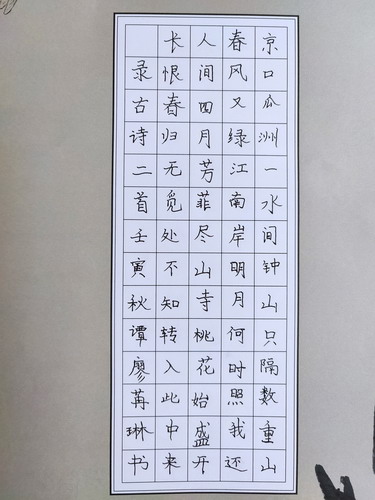 京口瓜洲一水间钟山只隔数重山
春风又绿江南岸明月何时照我还
人间四月芳菲尽山寺桃花始盛开
长恨春归无觅处不知转入此中来
录古诗二首壬寅秋谭廖苒琳书